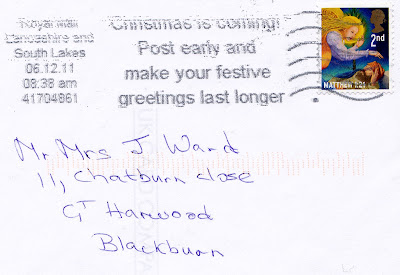 Royal Mail
Lancashire and
South Lakes
06.12.11
08:38 am
41704961
Christmas is coming!
Post early and
make your festive
greetings last longer
2nd
MATTHEW 1:21
Mr Mrs J Ward
11, Chatburn Close
GT Harwood
Blackburn